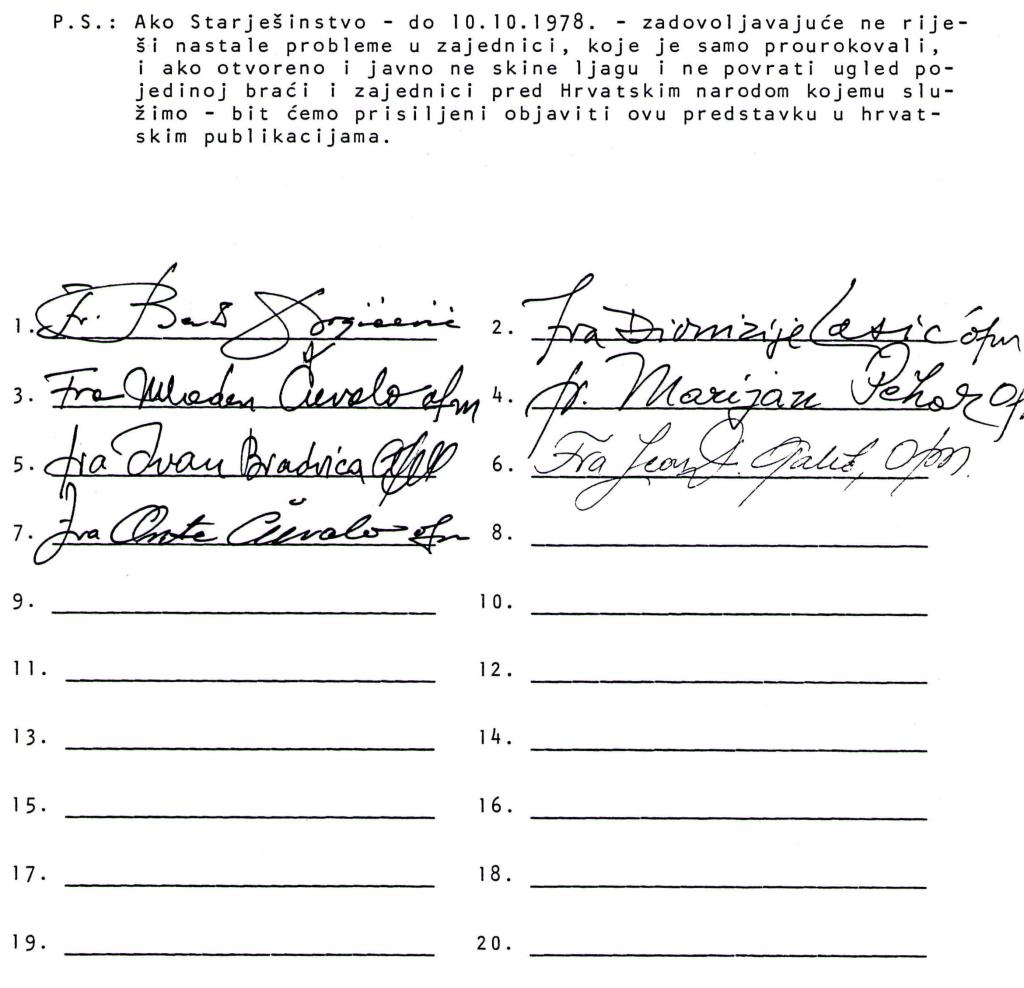 P.S.: Ako Starješinstvo - do 10.10.1978. - zadovoljavajuće ne rije-
ši nastale probleme u zajednici, koje je samo prourokovali,
i ako otvoreno i javno ne skine ljagu i ne povrati ugled po-
jedinoj braći i zajednici pred Hrvatskim narodom kojemu slu-
žimo - bit ćemo prisiljeni objaviti ovu predstavku u hrvat-
skim publikacijama.
1. Fr.
2. fra Dionizije Lasić ofm
3. Fra Mladen Čuvalo ofm
4. fr. Marijan Pehar
5. fra Ivan Bradvica OFM
6. Fra Galić, Ofm.
7. fra Ante Čuvalo ofm
8.
9.
10.
11.
12.
13.
14.
15.
16.
17.
18.
19.
20.